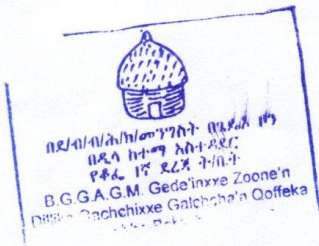 በደ/ብ/ብ/ሕ/ክ/መንግስት በጌዴኦ ዞን
በዲላ ከተማ አስተዳደር
የቆፌ 1ኛ ደረጃ ት/ቤት
B.G.G.A.G.M. Gede'inxxe Zoone'n
Galchcha'n Qoffeka